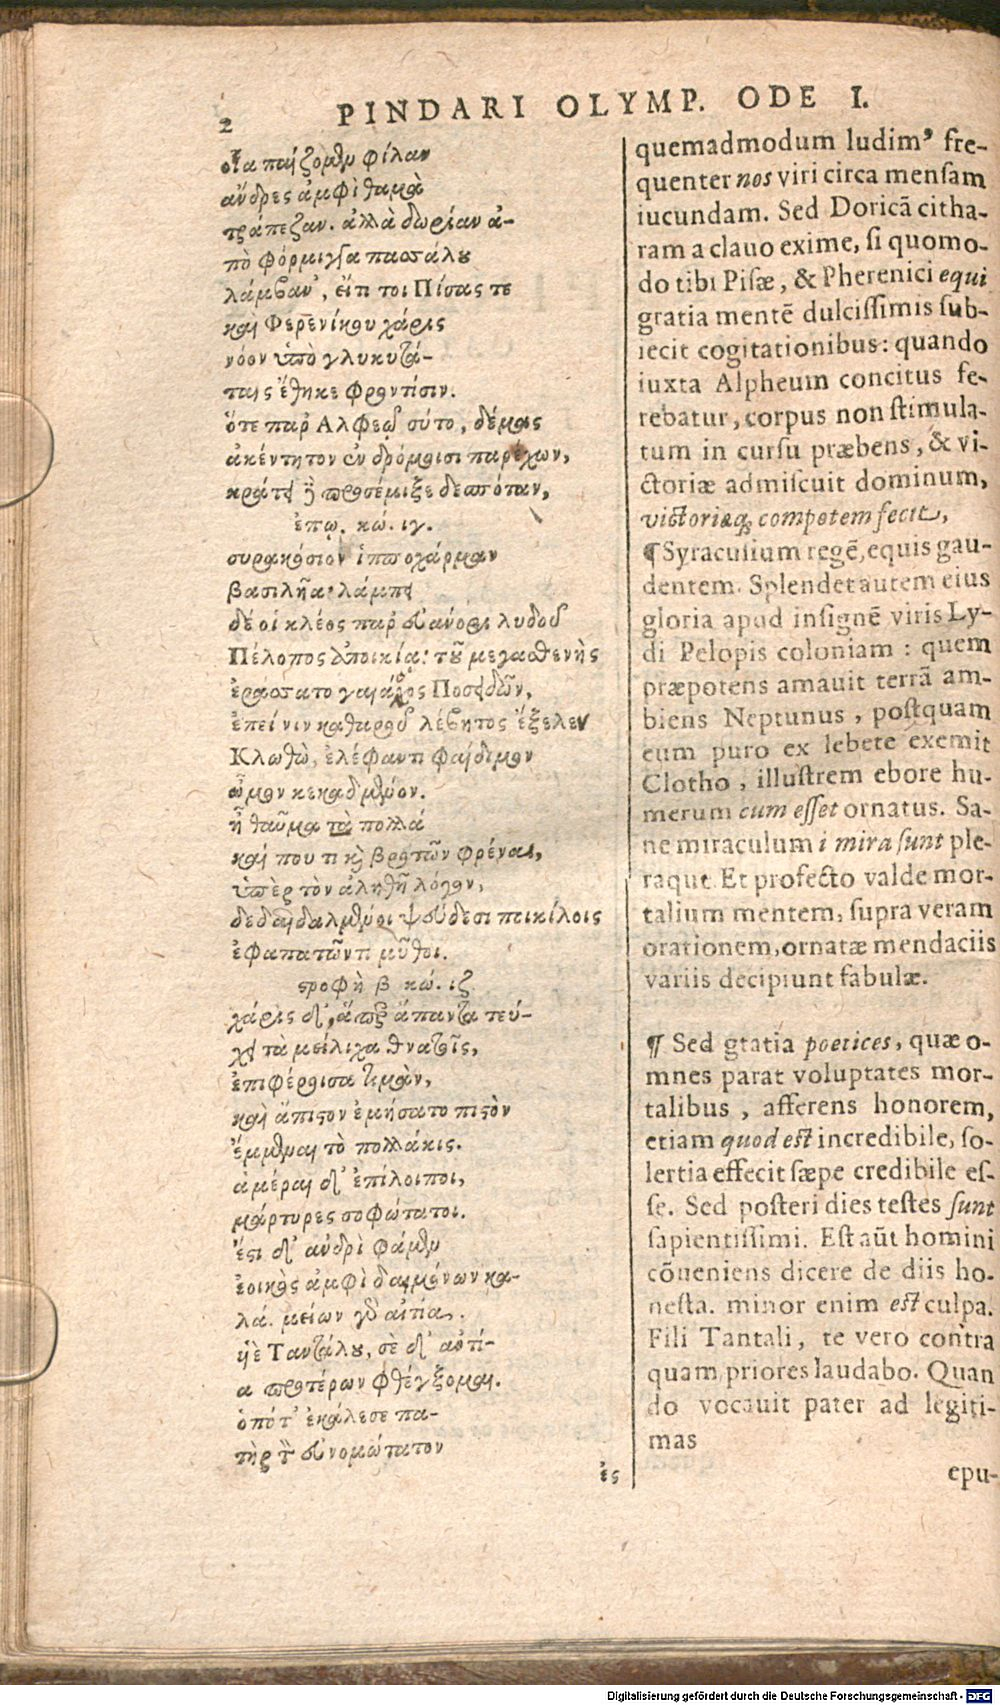 2 PINDARI OLYMP. ODE I.
οἷα παίζομεν φίλαν
ἄνδρες ἀμφὶ θαμὰ
τράπεζαν. ἀλλὰ δωρίαν ἀ-
πὸ φόρμιγγα πασσάλου
λάμβαν', εἴτι τοι Πίσας τε
καὶ Φερενίκου χάρις
νόον ὑπὸ γλυκυτά-
ταις ἔθηκε φροντίσιν.
ὅτε παρ Ἀλφεῷ σύτο, δέμας
ἀκέντητον ἐν δρόμοισι παρέχων,
κράτει δὲ προσέμιξε δεσπόταν,
ἐπῳ. κώ. ιγ.
συρακόσιον ἱπποχάρμαν
βασιλῆα· λάμπει
δέ οἱ κλέος παρ εὐάνορι λυδοῦ
Πέλοπος ἀποικίᾳ· τοῦ μεγασθενὴς
ἐράσσατο γαιάοχος Ποσειδῶν,
ἐπεί νιν καθαροῦ λέβητος ἔξελεν
Κλωθὼ, ἐλέφαντι φαίδιμον
ὦμον κεκαδμένον.
ἦ θαῦμα τὰ πολλά
καί που τι καὶ βροτῶν φρένας,
ὑπὲρ τὸν ἀληθῆ λόγον,
δεδαιδαλμένοι ψεύδεσι ποικίλοις
ἐξαπατῶντι μῦθοι.
ϛροφὴ β κώ. ιζ
χάρις δ', ἅπερ ἅπαντα τεύ-
χει τὰ μείλιχα θνατοῖς,
ἐπιφέροισα τιμὰν,
καὶ ἄπιϛον ἐμήσατο πιϛὸν
ἔμμεναι τὸ πολλάκις.
ἁμέραι δ' ἐπίλοιποι,
μάρτυρες σοφώτατοι.
ἔϛι δ' ἀνδρὶ φάμεν
ἐοικὸς ἀμφὶ δαιμόνων κα-
λά. μείων γὰρ αἰτία.
υἱὲ Ταντάλου, σὲ δ' ἀντί-
α προτέρων φθέγξομαι.
ὁπότ' ἐκάλεσε πα-
τὴρ τὸν εὐνομώτατον
ἐς
quemadmodum ludim⁹ fre-
quenter nos viri circa mensam
iucundam. Sed Doricã citha-
ram a clauo exime, si quomo-
do tibi Pisæ, & Pherenici equi
gratia mentẽ dulcissimis sub-
iecit cogitationibus: quando
iuxta Alpheum concitus fe-
rebatur, corpus non stimula-
tum in cursu præbens, & vi-
ctoriæ admiscuit dominum,
victoriæq; compotem fecit,
¶ Syracusium regẽ, equis gau-
dentem. Splendet autem eius
gloria apud insignẽ viris Ly-
di Pelopis coloniam : quem
præpotens amauit terrã am-
biens Neptunus, postquam
eum puro ex lebete exemit
Clotho, illustrem ebore hu-
merum cum esset ornatus. Sa-
ne miraculum i mira sunt ple-
raque. Et profecto valde mor-
talium mentem, supra veram
orationem, ornatæ mendaciis
variis decipiunt fabulæ.
¶ Sed gratia poetices, quæ o-
mnes parat voluptates mor-
talibus, afferens honorem,
etiam quod est incredibile, so-
lertia effecit sæpe credibile es-
se. Sed posteri dies testes sunt
sapientissimi. Est aũt homini
cõueniens dicere de diis ho-
nesta. minor enim est culpa.
Fili Tantali, te vero contra
quam priores laudabo. Quan
do vocauit pater ad legiti-
mas
epu-
Digitalisierung gefördert durch die Deutsche Forschungsgemeinschaft - DFG